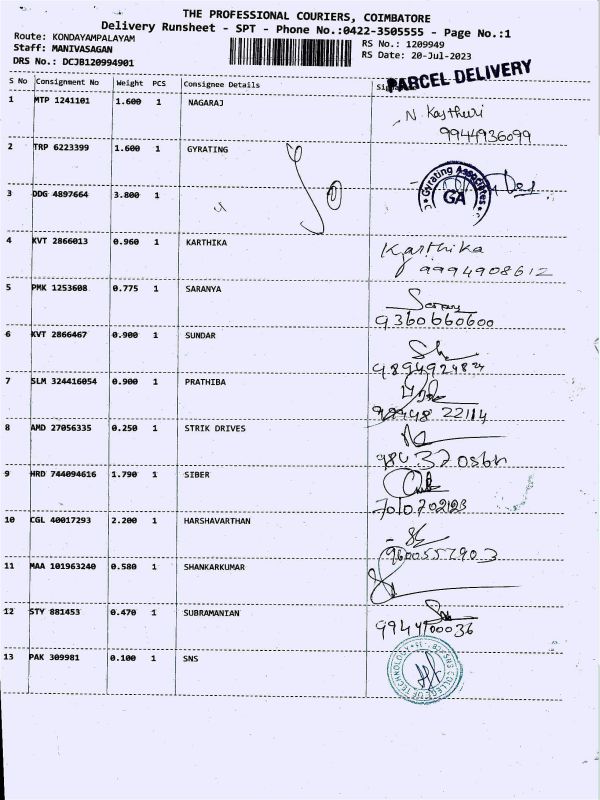 THE PROFESSIONAL COURIERS, COIMBATORE
Delivery Runsheet - SPT - Phone No.:0422-3505555 - Page No.:1
Route: KONDAYAMPALAYAM
Staff: MANIVASAGAN
DRS No.: DCJB120994901
RS No.: 1209949
RS Date: 20-Jul-2023
PARCEL DELIVERY
S No Consignment No Weight PCS Consignee Details
1 MTP 1241101 1.600 1 NAGARAJ N. Kasthuri
9944936099
2 TRP 6223399 1.600 1 GYRATING
Gyrating Associates
GA
3 DDG 4897664 3.800 1
4 KVT 2866013 0.960 1 KARTHIKA Karthika
9994908612
5 PMK 1253608 0.775 1 SARANYA
9360660600
6 KVT 2866467 0.900 1 SUNDAR
7 SLM 324416054 0.900 1 PRATHIBA
8 AMD 27056335 0.250 1 STRIK DRIVES
9 HRD 744094616 1.790 1 SIBER
10 CGL 40017293 2.200 1 HARSHAVARTHAN
9600557903
11 MAA 101963240 0.580 1 SHANKARKUMAR
12 STY 881453 0.470 1 SUBRAMANIAN
9944700036
13 PAK 309981 0.100 1 SNS
SNS COLLEGE OF TECHNOLOGY